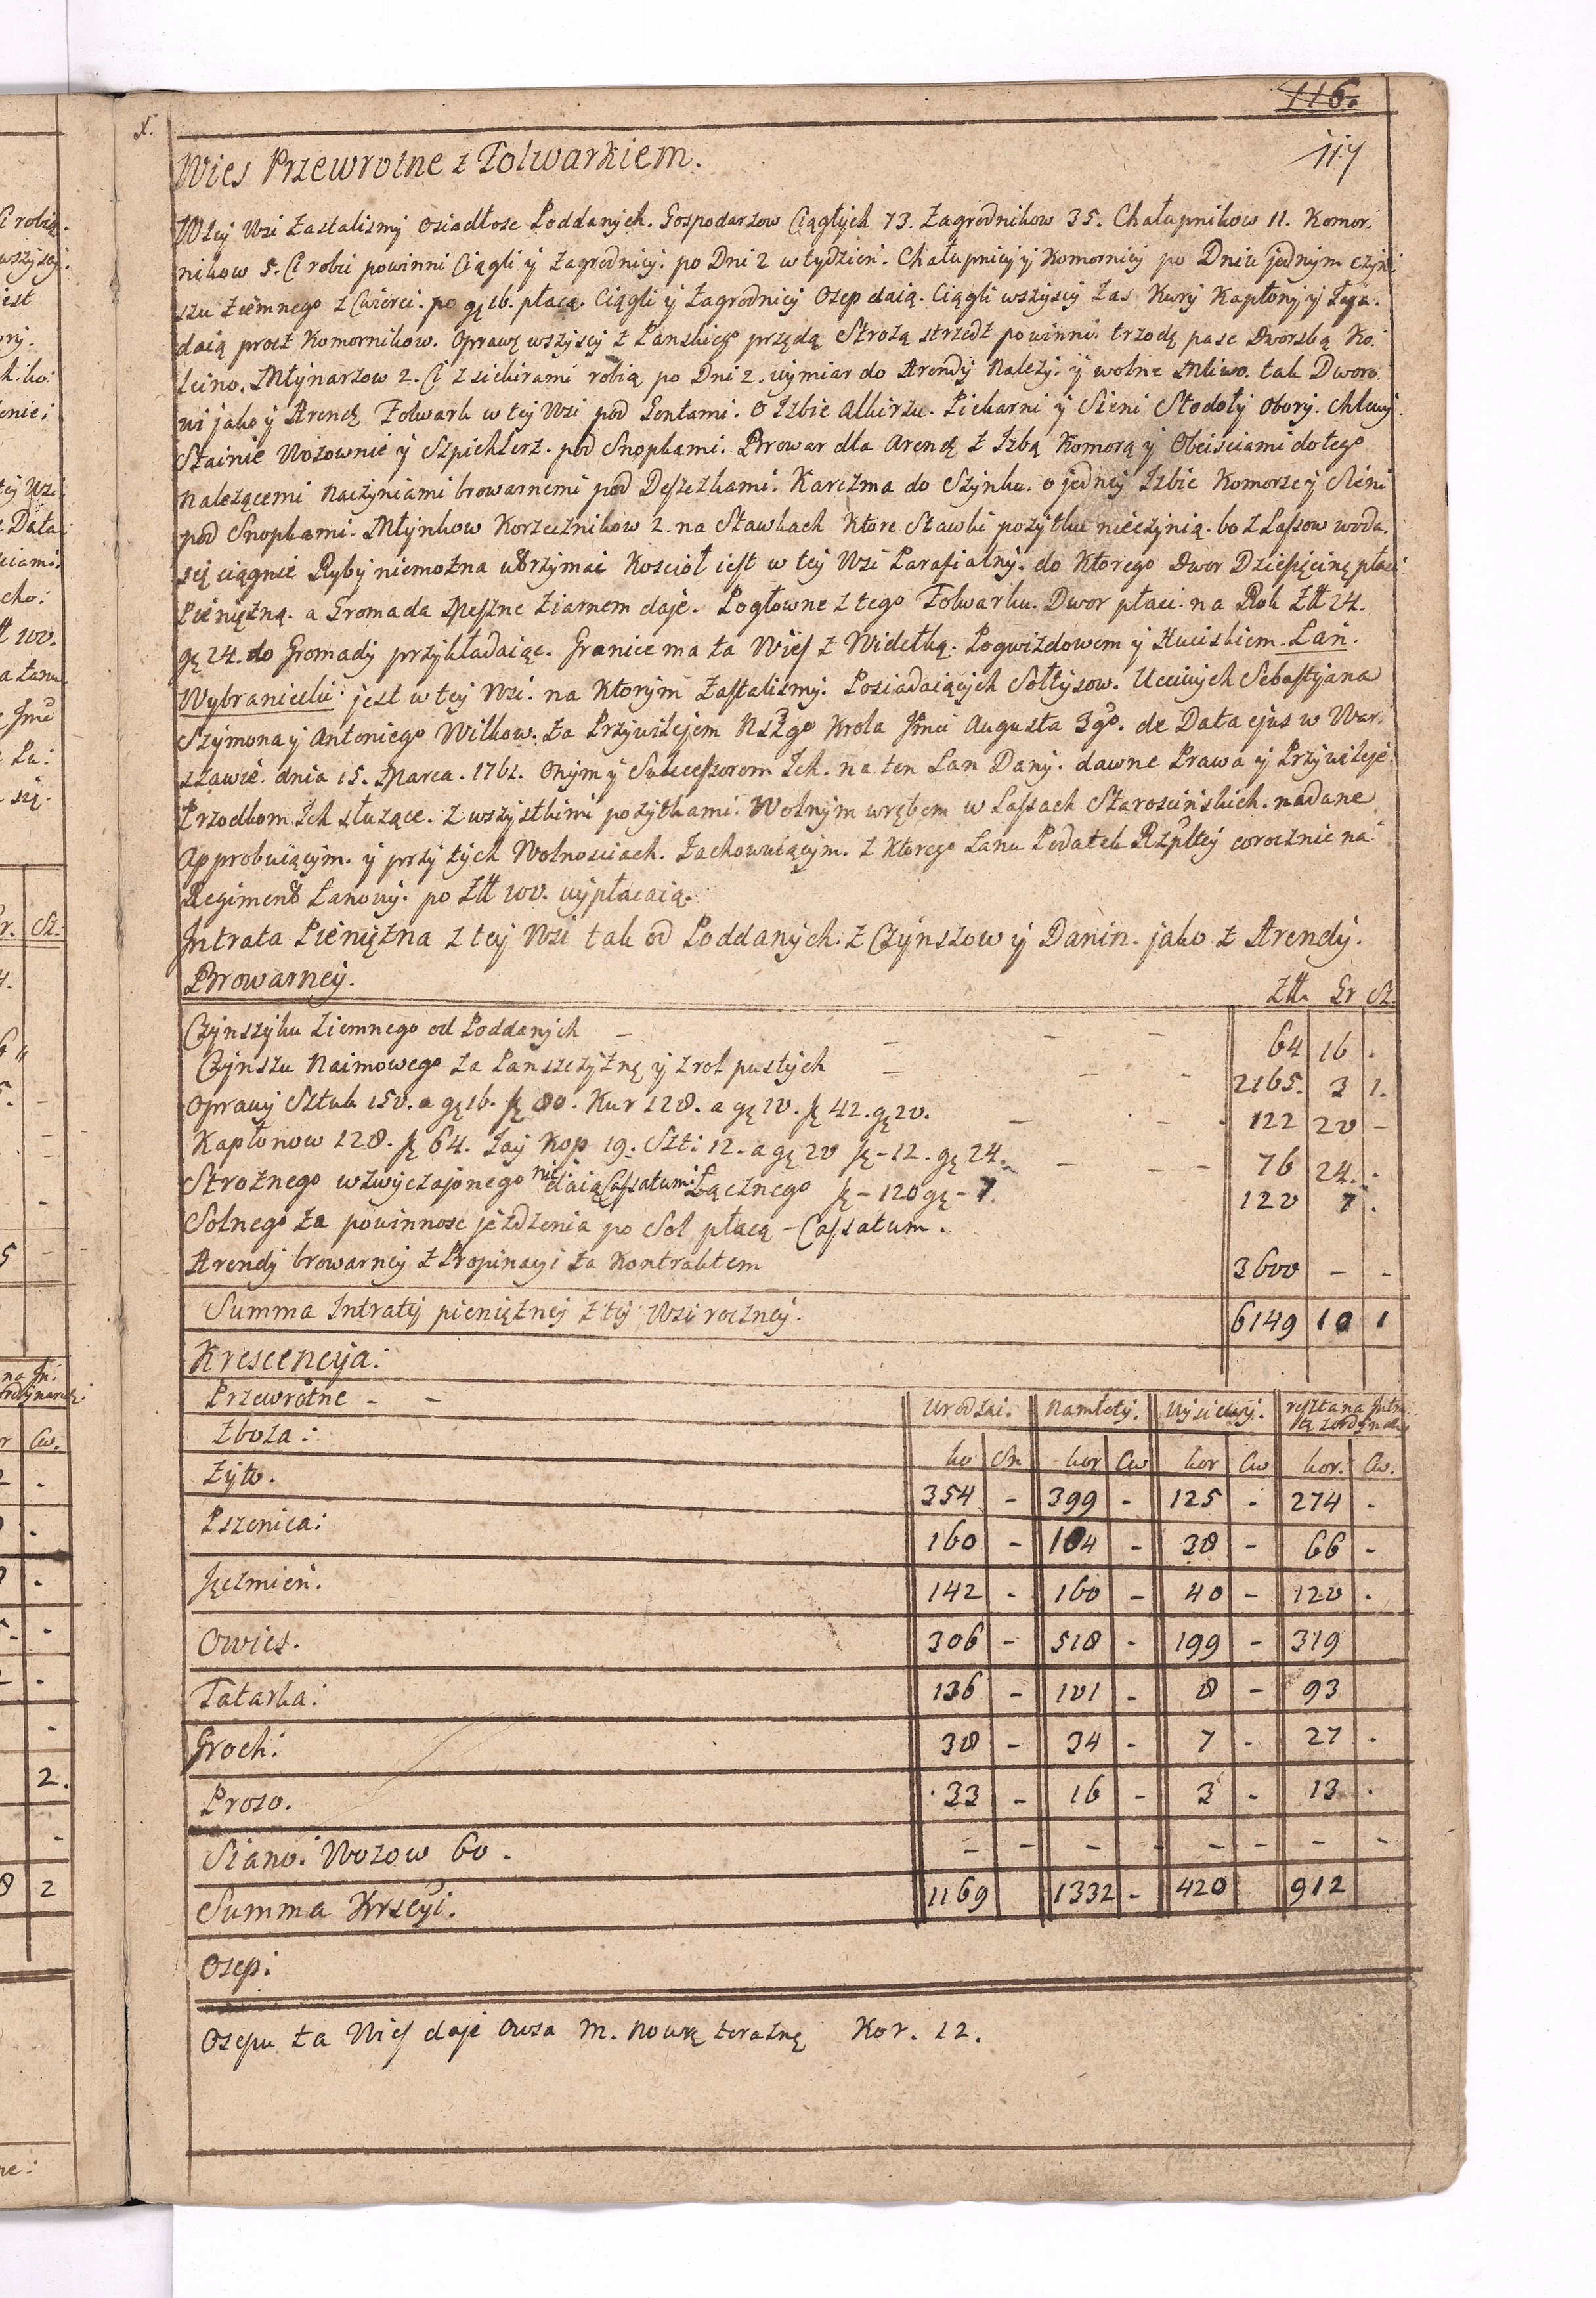 116.
117
X.
Wies Przewrotne z Folwarkiem.
W tey Wsi zastalismy osiadłosc Poddanych. Gospodarzow Ciągłych 73. Zagrodnikow 35. Chałupnikow 11. Komor:
nikow 5. Ci robic powinni Ciągli y Zagrodnicy. po Dni 2 w tydzien. Chałupnicy y Komornicy po Dniu jednym czyn:
szu ziemnego z Cwierci. po gę 16. płacą. Ciągli y Zagrodnicy Osep daią. Ciągli wszyscy zas Kury Kapłony y Jaja.
daią procz Komornikow. Oprawę wszyscy z Panskiego przędą Strozą strzedz powinni. trzodę pasc Dworską Ko:
leino. Młynarzow 2. Ci z siekirami robią po Dni 2. wymiar do Arendy Nalezy. y wolne Mliwo. tak Dworo:
wi jako y Arendę Folwark w tey Wsi pod Gontami. o Izbie Alkirzu. Piekarni y Sieni Stodoły Obory. Chlewy.
Stainie Wozownie y Szpichlerz. pod Snopkami. Browar dla Arendę z Izbą Komorą y Obeisciami do tego
nalezącemi naczyniami browarnemi pod Deszczkami. Karczma do Szynku. o jedney Izbie Komorze y Sieni
pod Snopkami. Młynkow Korzecznikow 2. na Stawkach Ktore Stawki pozytku nieczynią. bo z Lassow woda.
się ciągnie Ryby niemozna utrzymac Kosciół iest w tey Wsi Parafialny. do Ktorego Dwor Dziesięcinę płaci
Pieniężną. a Gromada Meszne ziarnem daje. Pogłowne z tego Folwarku. Dwor płaci. na Rok Złł 24.
gę 24. do Gromady przykładaiąc. Granice ma ta Wies z Widełką. Pogwizdowem y Huciskiem. Łan.
Wybraniecki: jest w tey Wsi. na Ktorym zastalismy. Posiadaiących Sołtysow. Uczciwych Sebastyana
Szymona y Antoniego Wilkow. za Przywilejem NSZgo Krola Jmci Augusta 3go. de Data ejus w War:
szawie. dnia 15. Marca. 1761. Onym y Sukcessorom Ich. na ten Łan Dany. dawne Prawa y Przywileje.
Przodkom Ich służące. z wszystkimi pozytkami. Wolnym wrębem w Lassach Staroscińskich. nadane
Approbuiącym. y przy tych Wolnosciach. Zachowuiącym. z Ktorego Łanu Podatek Rzpltey corocznie na
Regiment Łanowy. po Złł 100. wypłacaią.
Intrata Pieniężna z tey Wsi tak od Poddanych. z Czynszow y Danin. jako z Arendy.
Browarney.
Złł. Gr Sz.
Czynszyku Ziemnego od Poddanych - - - - 64 16 .
Czynszu Naimowego za Panszczyznę y z rol pustych - - - 2165. 3 1.
Oprawy Sztuk 150. a gę 16. fę 80. Kur 128. a gę 10. fę 42. gę 20. - - - 122 20 -
Kapłonow 128. fę 64. Jay Kop 19. Szt: 12. a gę 20 fę - 12. gę 24. - - - 76 24. .
Stroznego wzwyczajonego nie daią Cassatum: Łącznego fę - 120 gę - 7 120 7 .
Solnego za powinnosc jezdzenia po Sol płacą - Cassatum.
Arendy browarney z Propinacyi za Kontraktem 3600 - -
Summa Intraty pieniężney z tey Wsi roczney. 6149 10 1
Krescencyja:
Przewrotne - - Urodzai. Namłoty. Wysiewy. reszta na Intra: tę z ordynaryą
Zboza: ko Sn kor Cw kor Cw kor. Cw.
Zyto. 354 - 399 - 125 - 274 .
Pszenica: 160 - 104 - 38 - 66 -
Jęczmień. 142 - 160 - 40 - 120 .
Owies. 306 - 518 - 199 - 319
Tatarka: 136 - 101 - 8 - 93
Groch: 38 - 34 - 7 - 27 .
Proso. 33 - 16 - 3 - 13 .
Siano. Wozow 60. - - - - - - - -
Summa Krscyi. 1169 1332 - 420 912
Osep:
Osepu ta Wies daje Owsa m. nową Kor. 12.